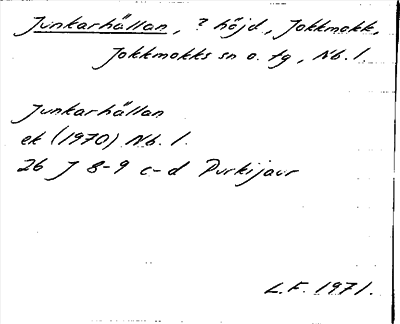 Junkarhällan, ? höjd, Jokkmokk,
Jokkmokks sn o. tg, Nb. l.
Junkarhällan
ek (1970) Nb. l.
26 J 8-9 c-d Purkijaur
L.F. 1971.